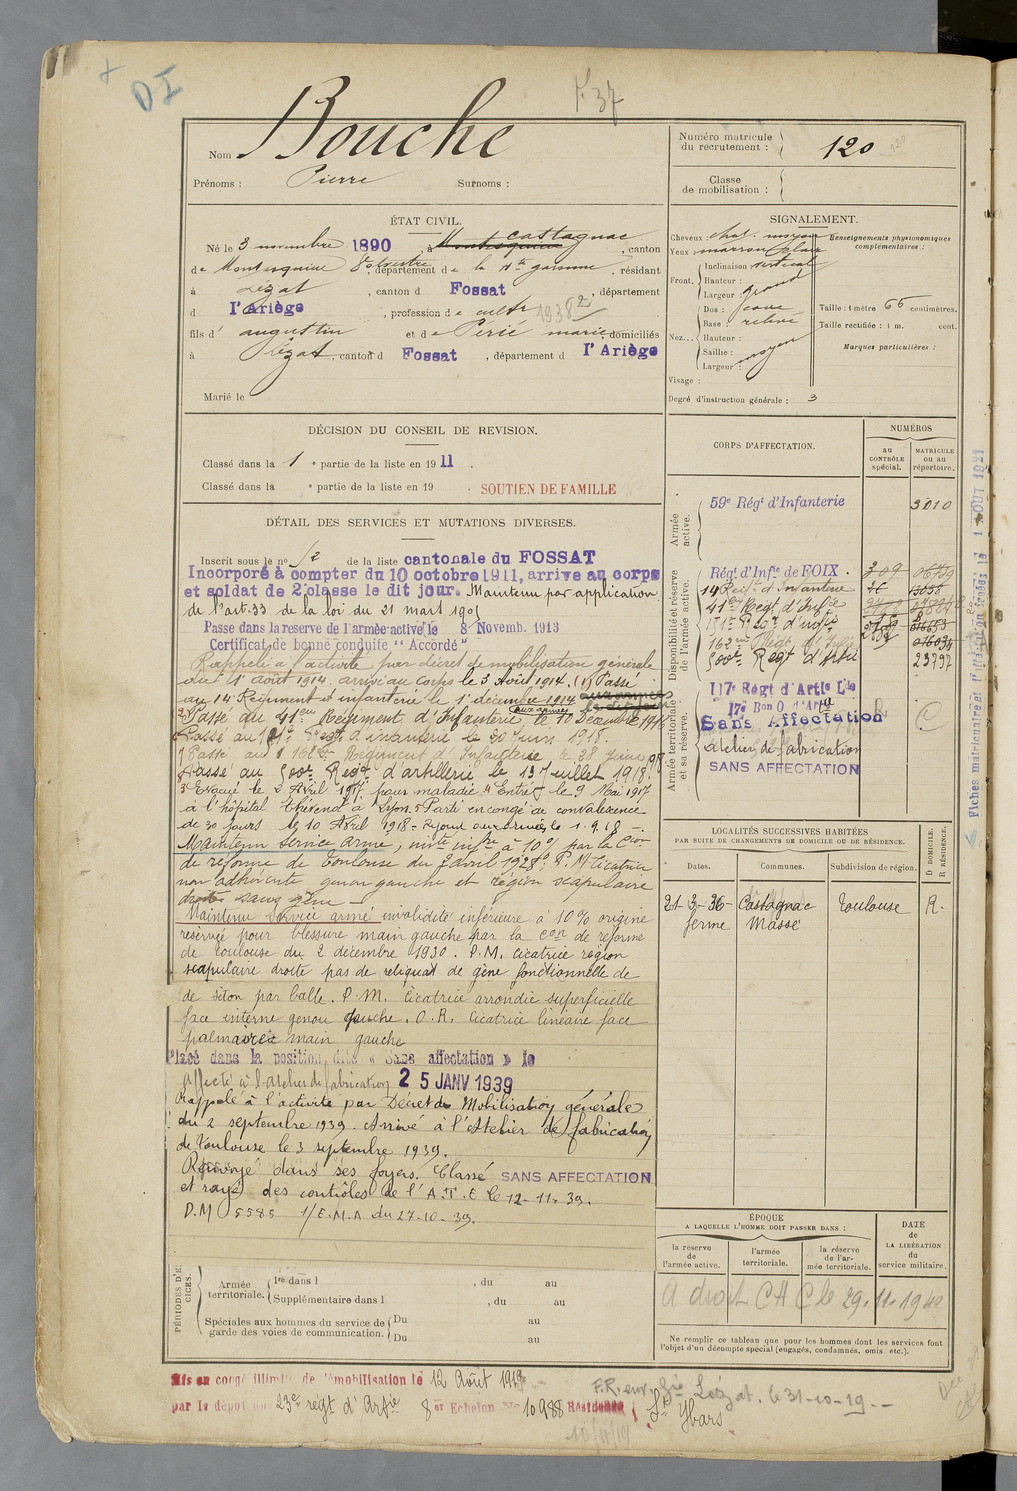 DI
F 37
Nom Bouche
Prénoms : Pierre Surnoms :
Numéro matricule du recrutement : 120
Classe de mobilisation :
ÉTAT CIVIL.
Né le 3 novembre 1890, à Montesquieu Castagnac, canton
de Montesquieu Volvestre, département de la Hte garonne, résidant
à Lézat, canton d Fossat, département
d l'Ariège, profession de cultr 1938
fils d' augustin et de Perié marie, domiciliés
à Lézat, canton d Fossat, département d l'Ariège
Marié le
SIGNALEMENT.
Cheveux : chat. moyen
Yeux : marron clair
Front. Inclinaison : vertical
Hauteur :
Largeur : grand
Nez... Dos : cave
Base : relevé
Hauteur :
Saillie : moyen
Largeur :
Visage :
Degré d'instruction générale : 3
Renseignements physionomiques complémentaires :
Taille : 1 mètre 66 centimètres.
Taille rectifiée : 1 m. cent.
Marques particulières :
DÉCISION DU CONSEIL DE REVISION.
Classé dans la 1e partie de la liste en 1911.
Classé dans la e partie de la liste en 19 . SOUTIEN DE FAMILLE
DÉTAIL DES SERVICES ET MUTATIONS DIVERSES.
Inscrit sous le n° 52 de la liste cantonale du FOSSAT
Incorporé à compter du 10 octobre 1911, arrive au corps
et soldat de 2e classe le dit jour. Maintenu par application
de l'art. 33 de la loi du 21 mars 1905
Passe dans la reserve de l'armée active le 8 Novemb. 1913
Certificat de bonne conduite "Accordé"
Rappelé à l'activité par décret de mobilisation générale
du 1er août 1914. arrivé au corps le 3 Août 1914. (1) Passé
au 14e Régiment d'infanterie le 1er décembre 1914
2° Passé au 41e Régiment d'Infanterie aux armées le 10 Décembre 191
Passé au 121e Regt d'infanterie le 20 Juin 1918.
Passé au 162e Régiment d'Infanterie le 28 Juin 1918
Passé au 500e Régt d'artillerie le 13 juillet 1918.
3° Evacué le 2 Avril 1917 pour maladie 4° Entré le 9 Mai 1917
à l'hôpital à Lyon. 5° Parti en congé de convalescence
de 30 jours le 10 Avril 1918 - Rejoint aux armées le 1.9.18 -.
Maintenu service armé, invité infre à 10% par la Con
de réforme de Toulouse du avril 1928. P.M. cicatrice
non adhérente genou gauche et région scapulaire
droite sans gêne -
Maintenu service armé invalidité inférieure à 10% origine
réservée pour blessure main gauche par la con de réforme
de toulouse du 2 décembre 1930. P.M. cicatrice région
scapulaire droite pas de reliquat de gêne fonctionnelle de
de séton par balle. P.M. Cicatrice arrondie superficielle
face interne genou gauche. O.R. Cicatrice linéaire face
palmaire main gauche
Placé dans la position dite « Sans affectation » le
Affecté à l'atelier de fabrication 25 JANV 1939
Rappelé à l'activité par Décret de Mobilisation générale
du 2 septembre 1939. Arrivé à l'Atelier de fabrication
de Toulouse le 3 septembre 1939.
Renvoyé dans ses foyers. Classé SANS AFFECTATION
et rayé des contrôles de l'A.T.E le 12-11-39.
D.M 5585 1/E.M.A du 27-10-39.
CORPS D'AFFECTATION.
NUMÉROS
au CONTRÔLE spécial.
MATRICULE ou au répertoire.
Armée active.
59e Régt d'Infanterie 3010
Disponibilité et réserve de l'armée active.
Régt d'Infie de FOIX. 309 06739
14 Régt d'Infanterie
41e Régt d'Infie
162e Régt d'Infie 016034
500e Régt d'Artie 23797
Armée territoriale et sa réserve.
117e Régt d'Artie Lde
17e Bon O d'Artie
Sans Affectation
Atelier de fabrication
SANS AFFECTATION
Fiches matricules 1 AOUT 1921
LOCALITÉS SUCCESSIVES HABITÉES
PAR SUITE DE CHANGEMENTS DE DOMICILE OU DE RÉSIDENCE.
Dates. Communes. Subdivision de région. D DOMICILE. R RÉSIDENCE.
21-3-36- Castagnac Toulouse R.
ferme Massé
ÉPOQUE
A LAQUELLE L'HOMME DOIT PASSER DANS :
la réserve de l'armée active.
l'armée territoriale.
la réserve de l'armée territoriale.
DATE de LA LIBÉRATION du service militaire.
A droit CAC le 29-11-1940
Ne remplir ce tableau que pour les hommes dont les services font
l'objet d'un décompte spécial (engagés, condamnés, omis, etc.).
PÉRIODES D'EXERCICES.
Armée territoriale. 1re dans l , du au
Supplémentaire dans l , du au
Spéciales aux hommes du service de garde des voies de communication. Du au
Du au
Mis en congé illimité de démobilisation le 12 Août 1919
par le dépôt du 23e régt d'Artie 8er Echelon No 10988 Résidence St Ybars
Lézat. le 31-10-19 --